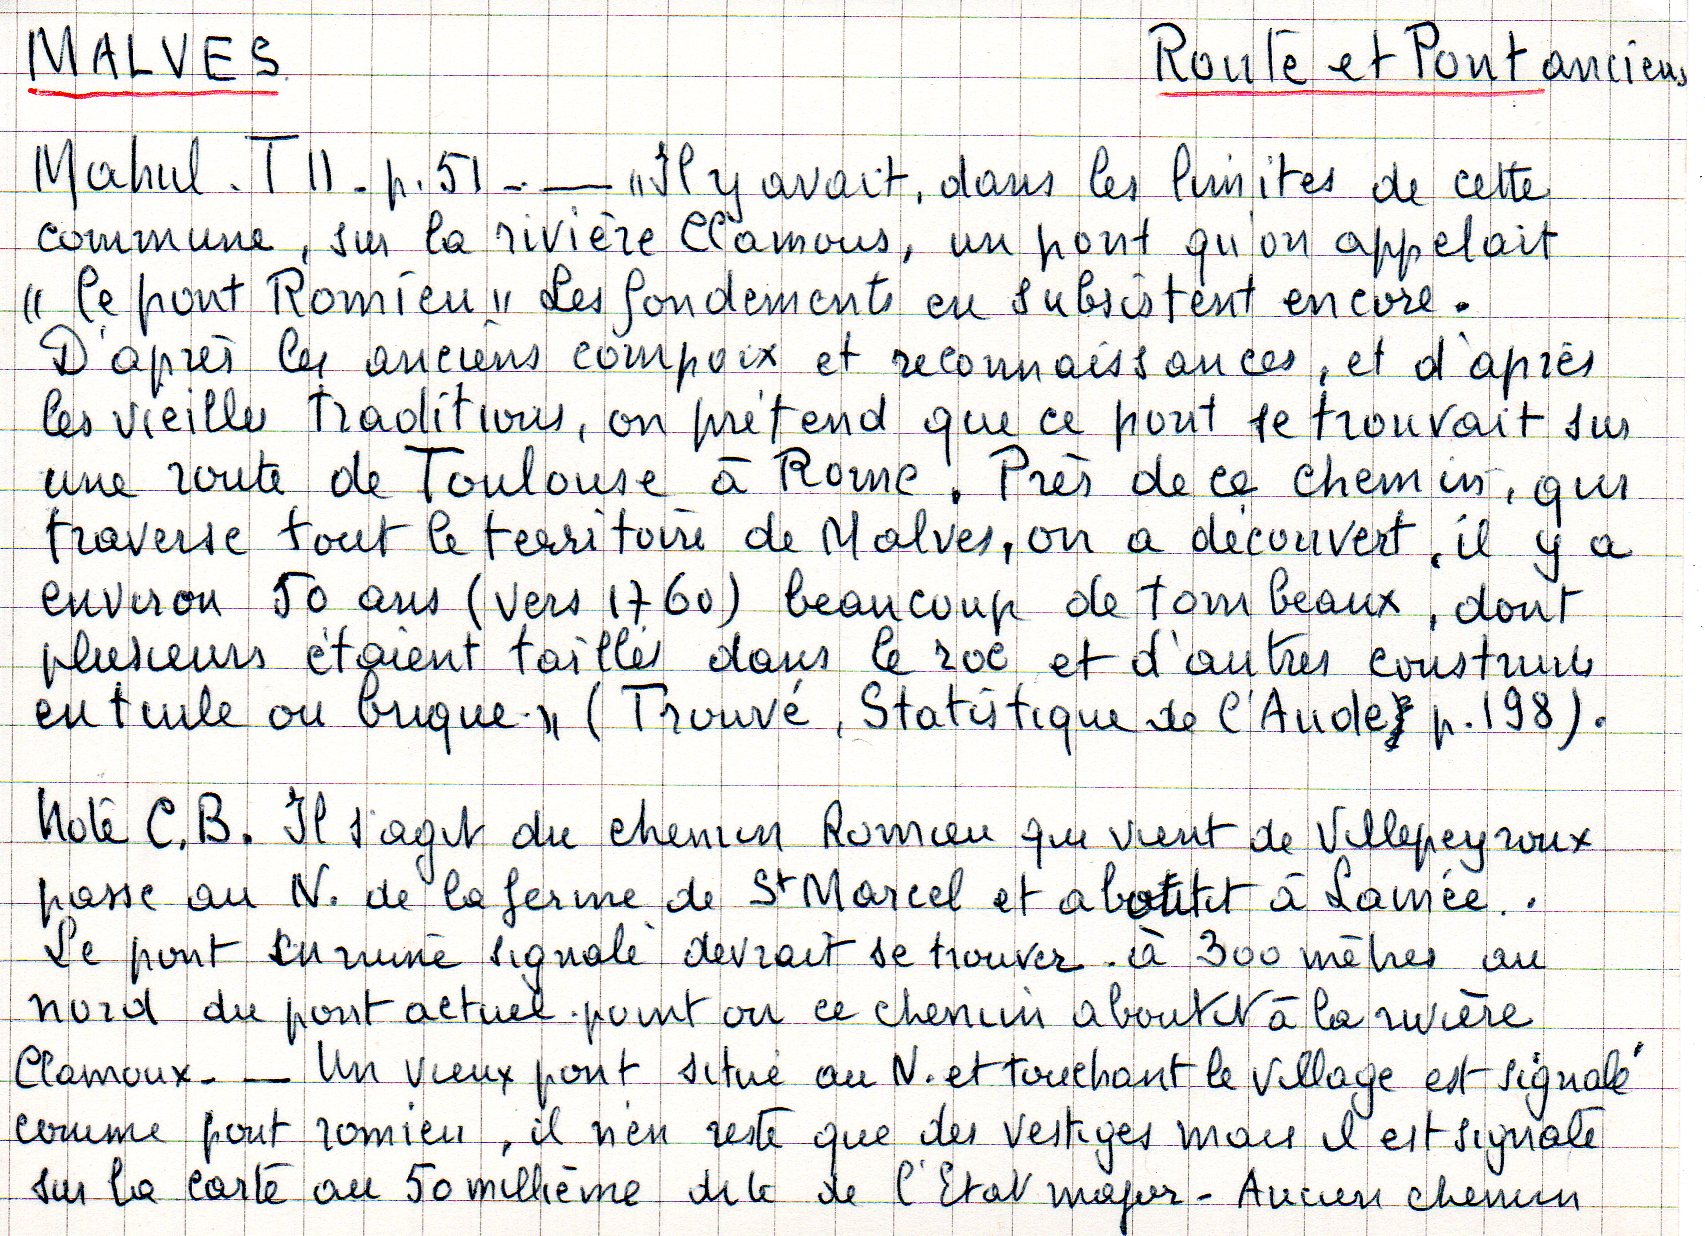 MALVES
Route et Pont anciens
Mahul. T II - p. 51 - — "Il y avait, dans les limites de cette
commune, sur la rivière Clamous, un pont qu'on appelait
"le pont Romieu" Les fondements en subsistent encore.
D'après les anciens compoix et reconnaissances, et d'après
les vieilles traditions, on prétend que ce pont se trouvait sur
une route de Toulouse à Rome. Près de ce chemin, qui
traverse tout le territoire de Malves, on a découvert, il y a
environ 50 ans (vers 1760) beaucoup de tombeaux, dont
plusieurs étaient taillés dans le roc et d'autres construits
en tuile ou brique." (Trouvé, Statistique de l'Aude p. 198).
Note C.B. Il s'agit du chemin Romieu qui vient de Villepeyroux
passe au N. de la ferme de St Marcel et aboutit à Laurée.
Le pont en ruine signalé devrait se trouver à 300 mètres au
nord du pont actuel point ou ce chemin aboutit à la rivière
Clamoux. - — Un vieux pont situé au N. et touchant le village est signalé
comme pont romieu, il n'en reste que des vestiges mais il est signalé
sur la carte au 50 millième dite de l'Etat major - Ancien chemin